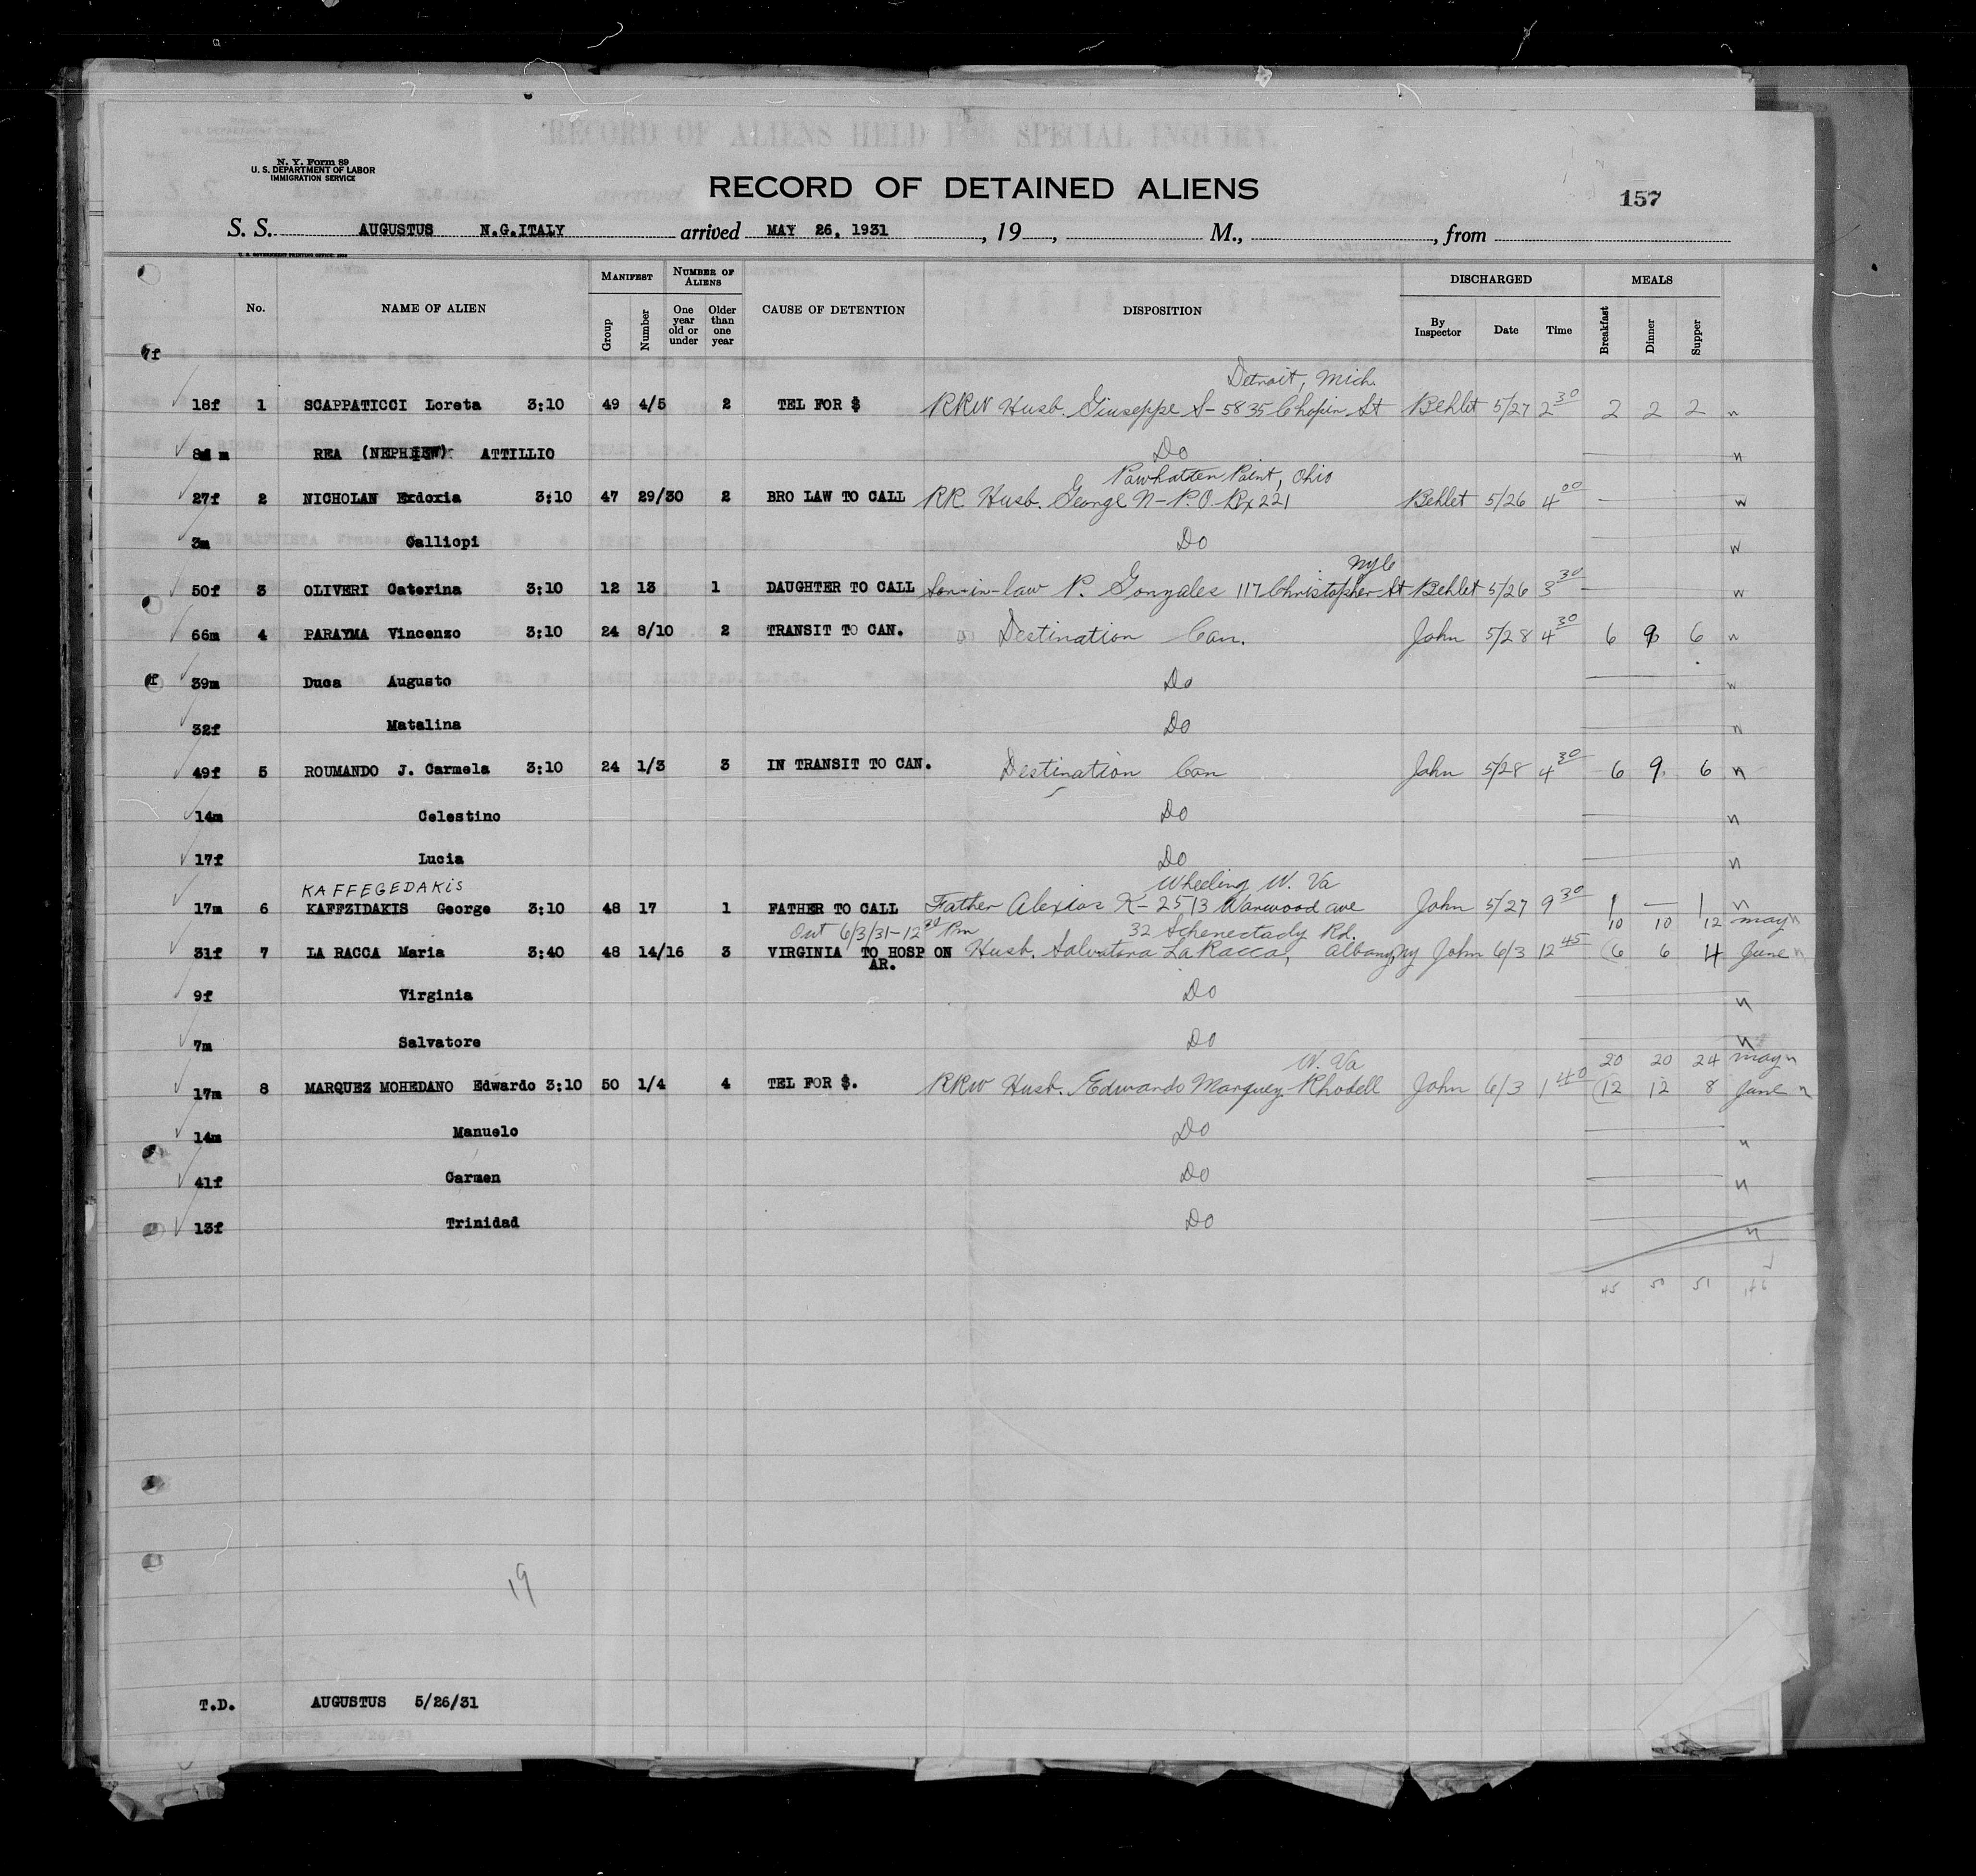 N. Y. Form 89
U. S. DEPARTMENT OF LABOR
IMMIGRATION SERVICE
RECORD OF DETAINED ALIENS
157
S. S. AUGUSTUS N.G.ITALY arrived MAY 26, 1931, 19, M., from
U. S. GOVERNMENT PRINTING OFFICE: 1928
No. NAME OF ALIEN MANIFEST Group Number NUMBER OF ALIENS One year old or under Older than one year CAUSE OF DETENTION DISPOSITION DISCHARGED By Inspector Date Time MEALS Breakfast Dinner Supper
7f
Detroit, Mich.
18f 1 SCAPPATICCI Loreta 3:10 49 4/5 2 TEL FOR $ RRW Husb. Giuseppe S- 5835 Chopin St Behlet 5/27 2 30 2 2 2 n
8 m REA (NEPHEW) ATTILLIO Do n
Pawhatten Point, Ohio
27f 2 NICHOLAN Exdoxia 3:10 47 29/30 2 BRO LAW TO CALL RR Husb. George N- P.O. Bx 221 Behlet 5/26 4 00 w
3m Galliopi Do w
NYC
50f 3 OLIVERI Caterina 3:10 12 13 1 DAUGHTER TO CALL Son-in-law P. Gonzales 117 Christopher St Behlet 5/26 3 30 w
66m 4 PARAYMA Vincenzo 3:10 24 8/10 2 TRANSIT TO CAN. Destination Can. John 5/28 4 30 6 9 6 n
f 39m Duca Augusto Do w
32f Matalina Do n
49f 5 ROUMANDO J. Carmela 3:10 24 1/3 3 IN TRANSIT TO CAN. Destination Can John 5/28 4 30 6 9 6 n
14m Celestino Do n
17f Lucia Do n
KAFFEGEDAKIS Wheeling W. Va
17m 6 KAFFZIDAKIS George 3:10 48 17 1 FATHER TO CALL Father Alexios K- 2513 Warwood ave John 5/27 9 30 1 — 1 n
Out 6/3/31-12 Pm 32 Schenectady Rd. 10 10 12 may n
31f 7 LA RACCA Maria 3:40 48 14/16 3 VIRGINIA TO HOSP ON AR. Husb. Salvatora La Racca, Albany, NY John 6/3 12 45 6 6 4 June n
9f Virginia Do n
7m Salvatore Do n
W. Va 20 20 24 may n
17m 8 MARQUEZ MOHEDANO Edwardo 3:10 50 1/4 4 TEL FOR $. RRW Husb. Edwardo Marquez Rhodell John 6/3 1 40 12 12 8 June n
14m Manuelo Do n
41f Carmen Do n
13f Trinidad Do n
45 50 51 146
19
T.D. AUGUSTUS 5/26/31